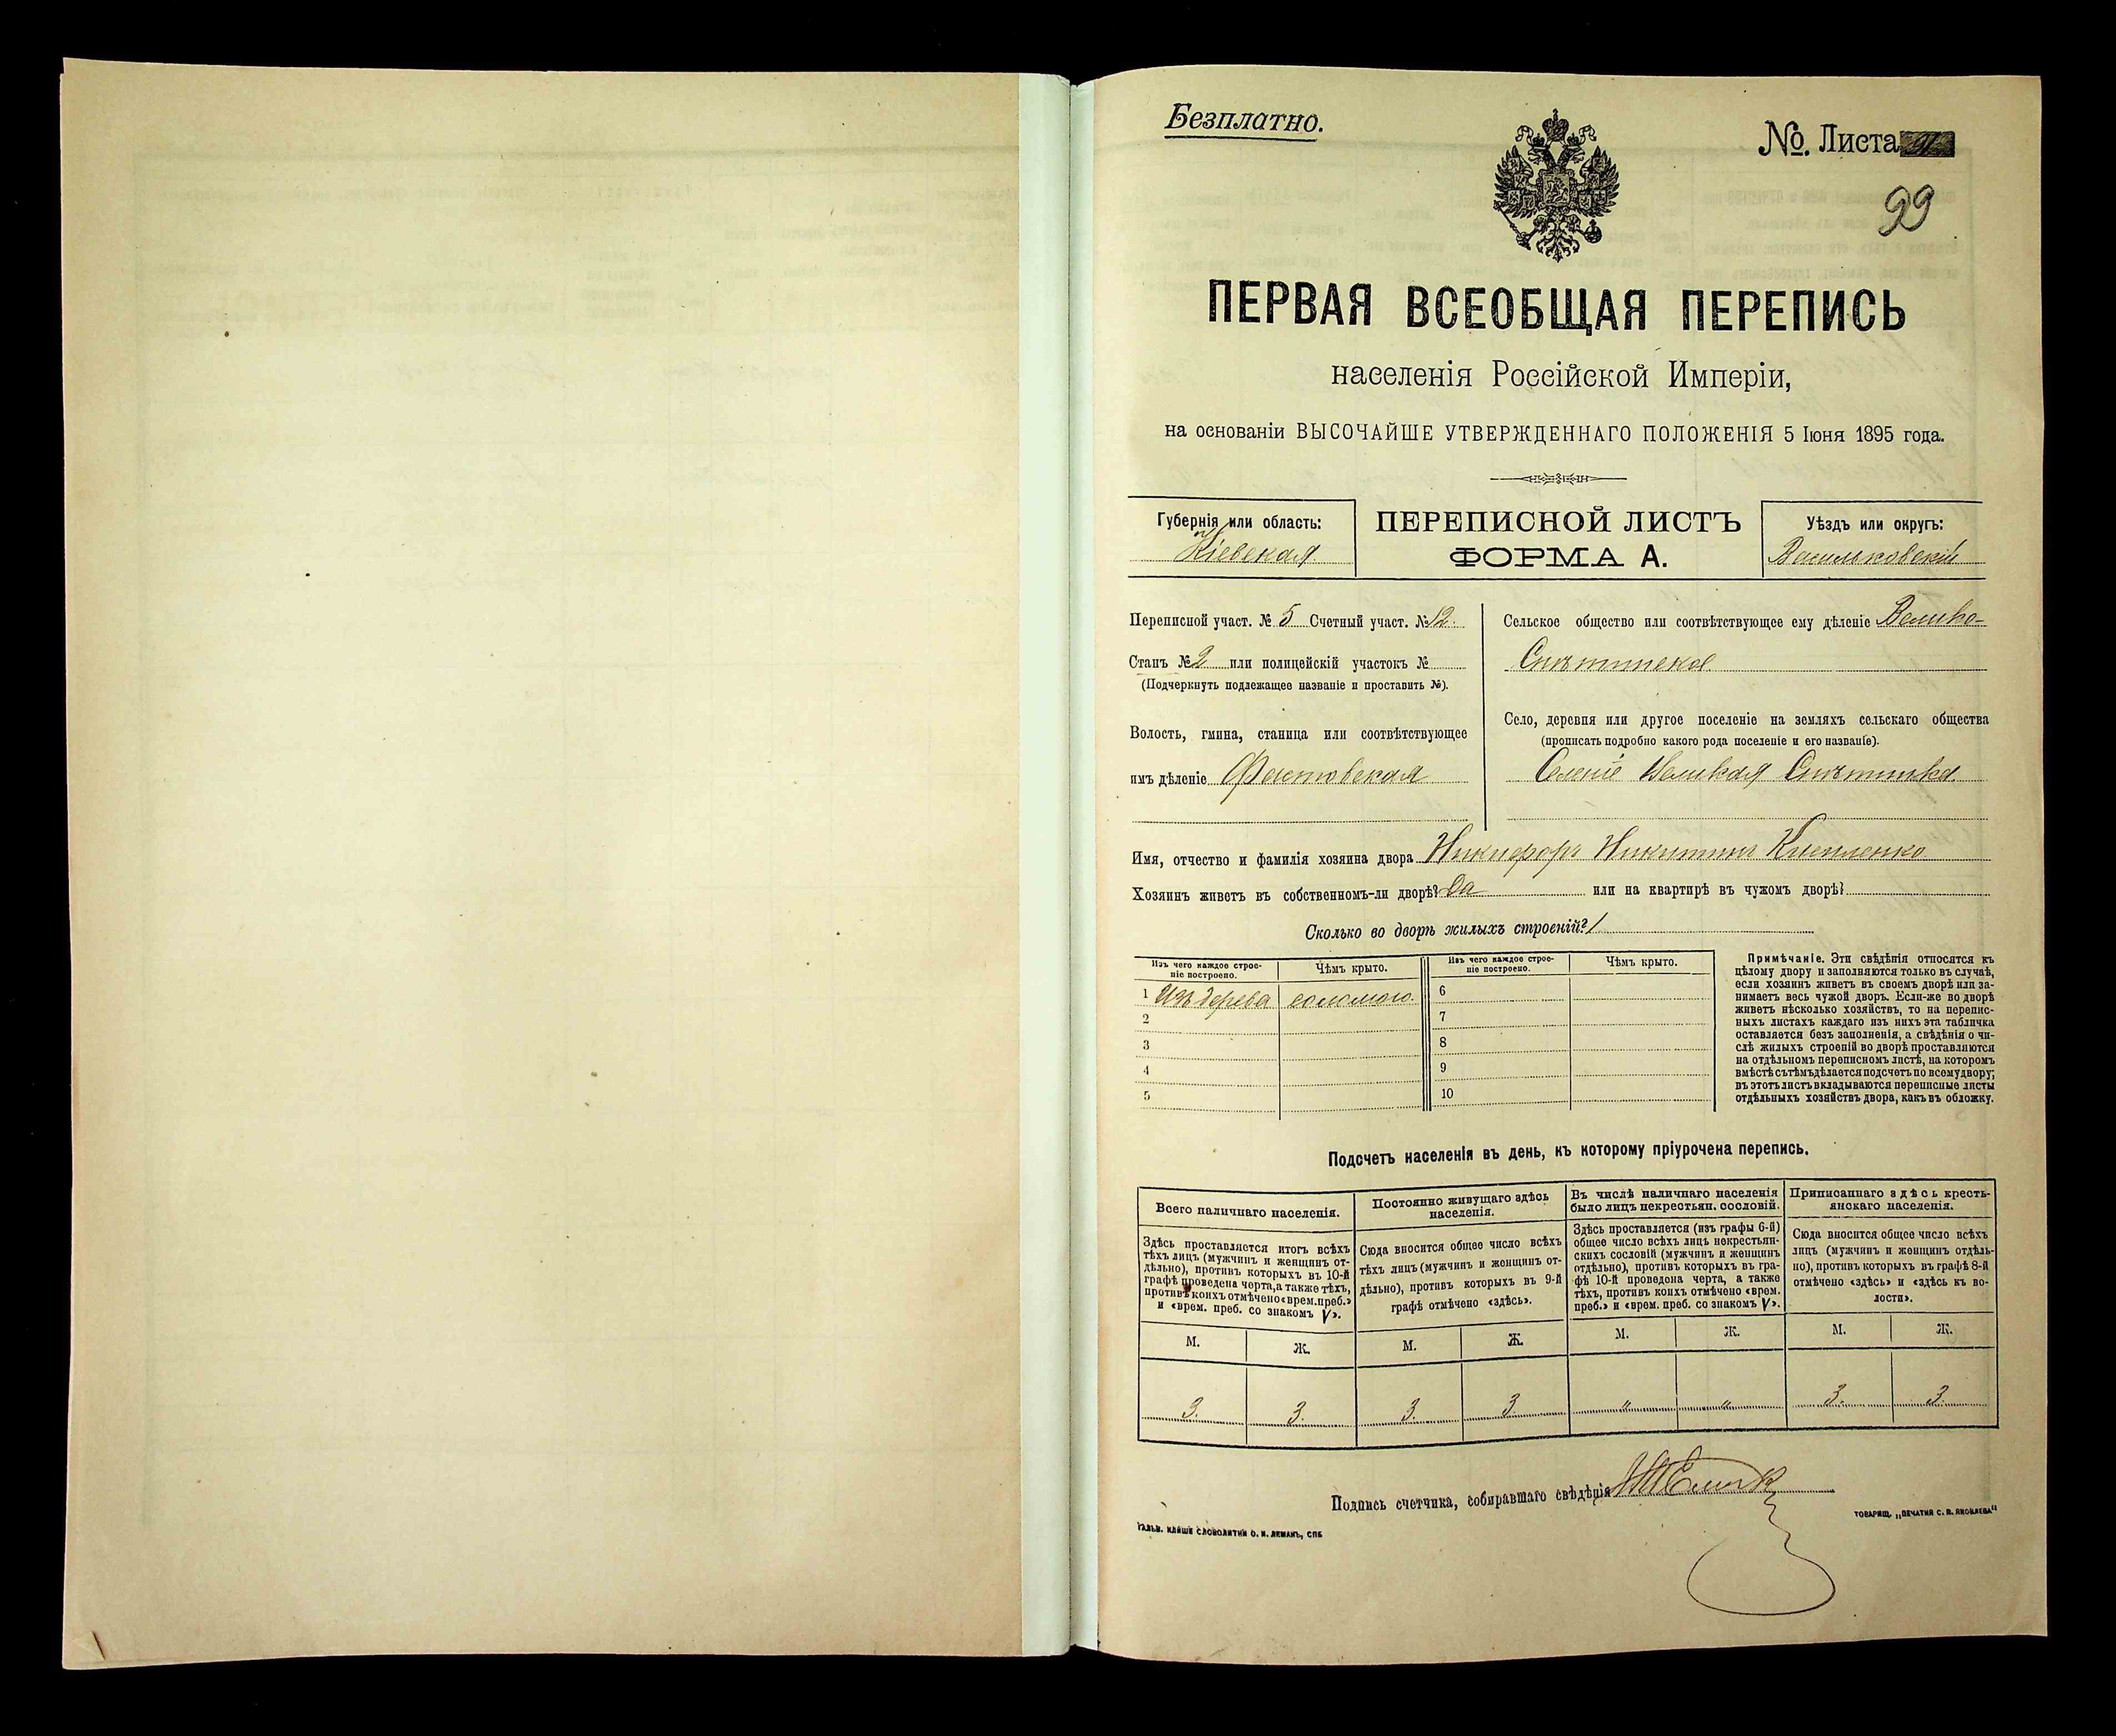 Безплатно.
№. Листа
99
ПЕРВАЯ ВСЕОБЩАЯ ПЕРЕПИСЬ
населенія Россійской Имперіи,
на основаніи ВЫСОЧАЙШЕ УТВЕРЖДЕННАГО ПОЛОЖЕНІЯ 5 Іюня 1895 года.
Губернія или область:
Кіевская
ПЕРЕПИСНОЙ ЛИСТЪ
ФОРМА А.
Уѣздъ или округъ:
Васильковскій
Переписной участ. № 5 Счетный участ. № 12.
Станъ № 2 или полицейскій участокъ №
(Подчеркнуть подлежащее названіе и проставить №).
Волость, гмина, станица или соотвѣтствующее
имъ дѣленіе Фастовская
Сельское общество или соотвѣтствующее ему дѣленіе Велико-
Снѣтинское
Село, деревня или другое поселеніе на земляхъ сельскаго общества
(прописать подробно какого рода поселеніе и его названіе).
Селеніе Великая Снѣтинка
Имя, отчество и фамилія хозяина двора Никифоръ Никитинъ
Хозяинъ живетъ въ собственномъ-ли дворѣ? Да или на квартирѣ въ чужомъ дворѣ?
Сколько во дворѣ жилыхъ строеній? 1
Изъ чего каждое строе-
ніе построено.
Чѣмъ крыто.
Изъ чего каждое строе-
ніе построено.
Чѣмъ крыто.
1 Изъ дерева соломою
6
2
7
3
8
4
9
5
10
Примѣчаніе. Эти свѣдѣнія относятся къ
цѣлому двору и заполняются только въ случаѣ,
если хозяинъ живетъ въ своемъ дворѣ или за-
нимаетъ весь чужой дворъ. Если-же во дворѣ
живетъ нѣсколько хозяйствъ, то на перепис-
ныхъ листахъ каждаго изъ нихъ эта табличка
оставляется безъ заполненія, а свѣдѣнія о чи-
слѣ жилыхъ строеній во дворѣ проставляются
на отдѣльномъ переписномъ листѣ, на которомъ
вмѣстѣ съ тѣмъ дѣлается подсчетъ по всему двору;
въ этотъ листъ вкладываются переписные листы
отдѣльныхъ хозяйствъ двора, какъ въ обложку.
Подсчетъ населенія въ день, къ которому пріурочена перепись.
Всего наличнаго населенія.
Здѣсь проставляется итогъ всѣхъ
тѣхъ лицъ (мужчинъ и женщинъ от-
дѣльно), противъ которыхъ въ 10-й
графѣ проведена черта, а также тѣхъ,
противъ коихъ отмѣчено «врем. преб.»
и «врем. преб. со знакомъ V».
Постоянно живущаго здѣсь
населенія.
Сюда вносится общее число всѣхъ
тѣхъ лицъ (мужчинъ и женщинъ от-
дѣльно), противъ которыхъ въ 9-й
графѣ отмѣчено «здѣсь».
Въ числѣ наличнаго населенія
было лицъ некрестьян. сословій.
Здѣсь проставляется (изъ графы 6-й)
общее число всѣхъ лицъ некрестьян-
скихъ сословій (мужчинъ и женщинъ
отдѣльно), противъ которыхъ въ гра-
фѣ 10-й проведена черта, а также
тѣхъ, противъ коихъ отмѣчено «врем.
преб.» и «врем. преб. со знакомъ V».
Приписаннаго здѣсь кресть-
янскаго населенія.
Сюда вносится общее число всѣхъ
лицъ (мужчинъ и женщинъ отдѣль-
но), противъ которыхъ въ графѣ 8-й
отмѣчено «здѣсь» и «здѣсь къ во-
лости».
М. Ж. М. Ж. М. Ж. М. Ж.
3. 3. 3. 3. " " 3. 3.
Подпись счетчика, собиравшаго свѣдѣнія
ГАЛЬВ. КЛИШЕ СЛОВОЛИТНИ О. И. ЛЕМАНЪ, СПБ
ТОВАРИЩ. „ПЕЧАТНЯ С. П. ЯКОВЛЕВА"